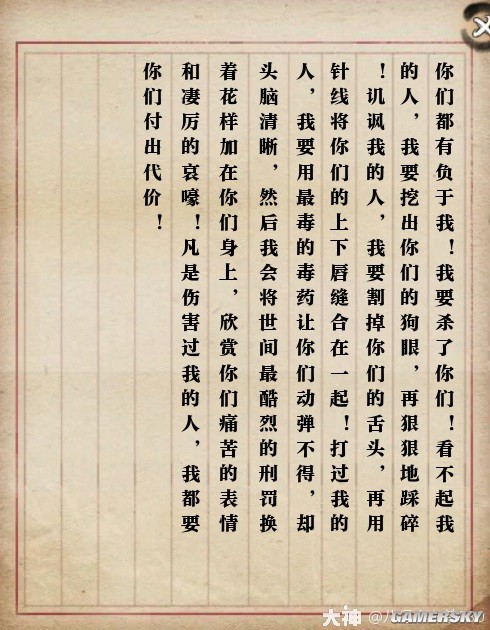 你们都有负于我！我要杀了你们！看不起我
的人，我要挖出你们的狗眼，再狠狠地踩碎
！讥讽我的人，我要割掉你们的舌头，再用
针线将你们的上下唇缝合在一起！打过我的
人，我要用最毒的毒药让你们动弹不得，却
头脑清晰，然后我会将世间最酷烈的刑罚换
着花样加在你们身上，欣赏你们痛苦的表情
和凄厉的哀嚎！凡是伤害过我的人，我都要
你们付出代价！
大神
GAMERSKY